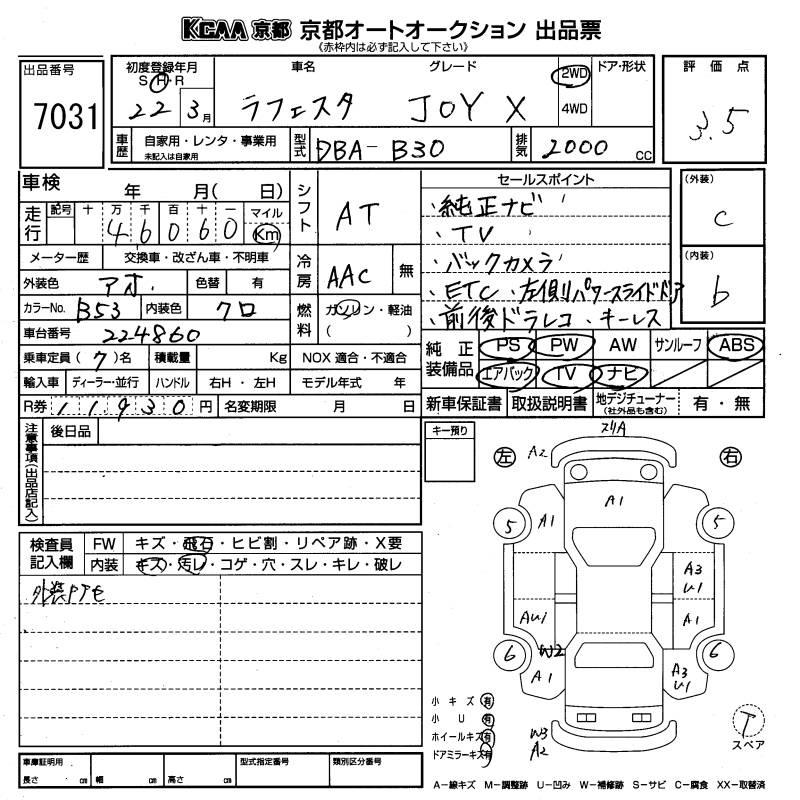 KCAA 京都 京都オートオークション 出品票
《赤枠内は必ず記入して下さい》
出品番号
7031
初度登録年月 車名 グレード ドア・形状
S・H・R
22 3月 ラフェスタ JOY X 2WD
4WD
車歴 自家用・レンタ・事業用
未記入は自家用
型式 DBA-B30 排気 2000 cc
評価点
3.5
車検 年 月( 日)
走行 記号 十 万 千 百 十 一 マイル
4 6 0 6 0 Km
メーター歴 交換車・改ざん車・不明車
外装色 アオ. 色替 有
カラーNo. B53 内装色 クロ
車台番号 224860
乗車定員(7)名 積載量 Kg NOX 適合・不適合
輸入車 ディーラー・並行 ハンドル 右H・左H モデル年式 年
R券 11930円 名変期限 月 日
シフト AT
冷房 AAC 無
燃料 ガソリン・軽油
( )
セールスポイント
・純正ナビ
・TV
・バックカメラ
・ETC・左側パワースライドドア
・前後ドラレコ・キーレス
(外装)
C
(内装)
b
純正装備品 PS PW AW サンルーフ ABS
エアバック TV ナビ
新車保証書 取扱説明書 地デジチューナー(社外品も含む) 有・無
注意事項(出品店記入)
後日品
キー預り
検査員記入欄 FW キズ・飛石・ヒビ割・リペア跡・X要
内装 キズ・汚レ・コゲ・穴・スレ・キレ・破レ
スリA
左 A2 右
A1
5 A1 5
A3
U1
AU1 A1
6 W2 6
A1 A3
U1
小キズ 有
小U 有
ホイールキズ 有 W3
ドアミラーキズ 有 A2
T
スペア
車庫証明用 型式指定番号 類別区分番号
長さ cm 幅 cm 高さ cm
A-線キズ M-調整跡 U-凹み W-補修跡 S-サビ C-腐食 XX-取替済